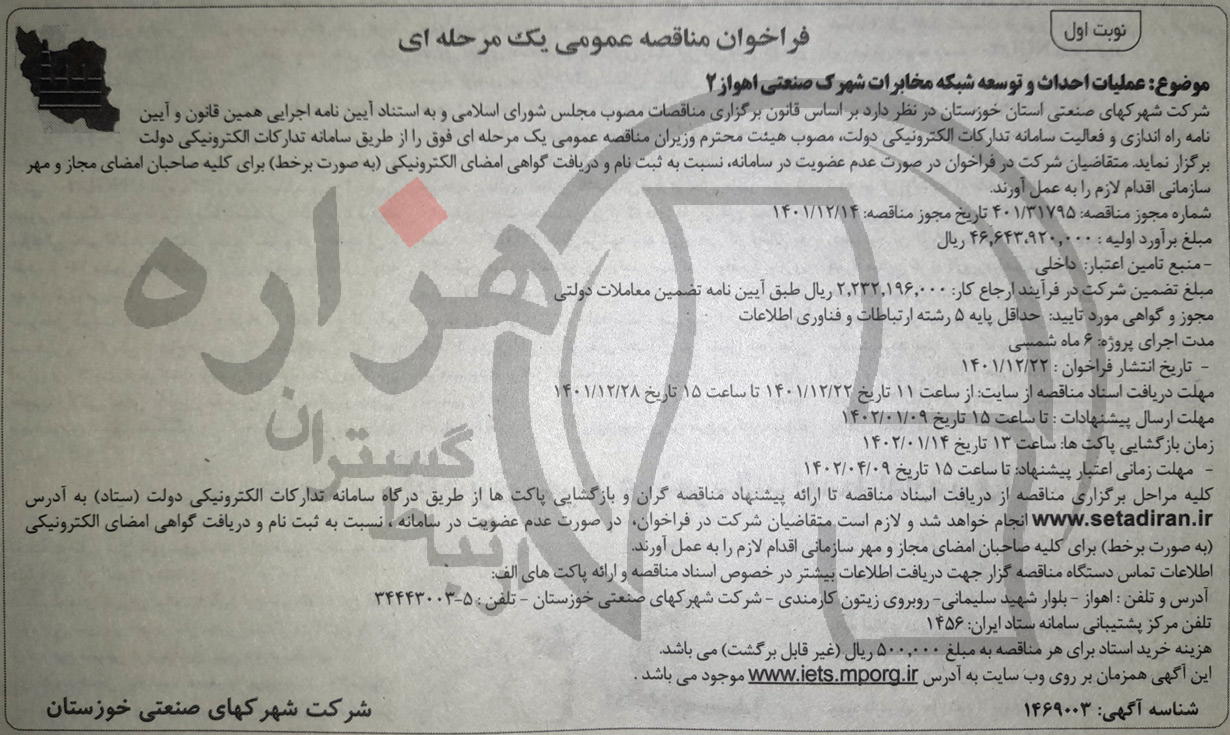 نوبت اول
فراخوان مناقصه عمومی یک مرحله ای
موضوع: عملیات احداث و توسعه شبکه مخابرات شهرک صنعتی اهواز ۲
شرکت شهرکهای صنعتی استان خوزستان در نظر دارد بر اساس قانون برگزاری مناقصات مصوب مجلس شورای اسلامی و به استناد آیین نامه اجرایی همین قانون و آیین
نامه راه اندازی و فعالیت سامانه تدارکات الکترونیکی دولت، مصوب هیئت محترم وزیران مناقصه عمومی یک مرحله ای فوق را از طریق سامانه تدارکات الکترونیکی دولت
برگزار نماید. متقاضیان شرکت در فراخوان در صورت عدم عضویت در سامانه، نسبت به ثبت نام و دریافت گواهی امضای الکترونیکی (به صورت برخط) برای کلیه صاحبان امضای مجاز و مهر
سازمانی اقدام لازم را به عمل آورند.
شماره مجوز مناقصه: ۴۰۱/۳۱۷۹۵ تاریخ مجوز مناقصه: ۱۴۰۱/۱۲/۱۴
مبلغ برآورد اولیه : ۴۶,۶۴۳,۹۲۰,۰۰۰ ریال
-منبع تامین اعتبار: داخلی
مبلغ تضمین شرکت در فرآیند ارجاع کار: ۲,۲۳۲,۱۹۶,۰۰۰ ریال طبق آیین نامه تضمین معاملات دولتی
مجوز و گواهی مورد تایید: حداقل پایه ۵ رشته ارتباطات و فناوری اطلاعات
مدت اجرای پروژه: ۶ ماه شمسی
- تاریخ انتشار فراخوان : ۱۴۰۱/۱۲/۲۲
مهلت دریافت اسناد مناقصه از سایت: از ساعت ۱۱ تاریخ ۱۴۰۱/۱۲/۲۲ تا ساعت ۱۵ تاریخ ۱۴۰۱/۱۲/۲۸
مهلت ارسال پیشنهادات : تا ساعت ۱۵ تاریخ ۱۴۰۲/۰۱/۰۹
زمان بازگشایی پاکت ها: ساعت ۱۳ تاریخ ۱۴۰۲/۰۱/۱۴
- مهلت زمانی اعتبار پیشنهاد: تا ساعت ۱۵ تاریخ ۱۴۰۲/۰۴/۰۹
کلیه مراحل برگزاری مناقصه از دریافت اسناد مناقصه تا ارائه پیشنهاد مناقصه گران و بازگشایی پاکت ها از طریق درگاه سامانه تدارکات الکترونیکی دولت (ستاد) به آدرس
www.setadiran.ir انجام خواهد شد و لازم است متقاضیان شرکت در فراخوان، در صورت عدم عضویت در سامانه ، نسبت به ثبت نام و دریافت گواهی امضای الکترونیکی
(به صورت برخط) برای کلیه صاحبان امضای مجاز و مهر سازمانی اقدام لازم را به عمل آورند.
اطلاعات تماس دستگاه مناقصه گزار جهت دریافت اطلاعات بیشتر در خصوص اسناد مناقصه و ارائه پاکت های الف:
آدرس و تلفن : اهواز - بلوار شهید سلیمانی- روبروی زیتون کارمندی - شرکت شهرکهای صنعتی خوزستان - تلفن : ۵-۳۴۴۴۳۰۰۳
تلفن مرکز پشتیبانی سامانه ستاد ایران: ۱۴۵۶
هزینه خرید استاد برای هر مناقصه به مبلغ ۵۰۰,۰۰۰ ریال (غیر قابل برگشت) می باشد.
این آگهی همزمان بر روی وب سایت به آدرس www.iets.mporg.ir موجود می باشد .
شناسه آگهی: ۱۴۶۹۰۰۳
شرکت شهرکهای صنعتی خوزستان
هزاره
گستران
انبساط